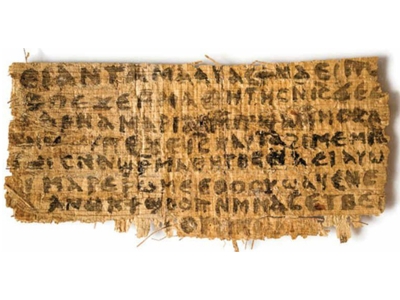 ⲛⲁⲉⲓ ⲁⲛ ⲧⲁⲙⲁⲁⲩ ⲁⲥϯ ⲛⲁⲉⲓ ⲡⲱ
ⲡⲉϫⲉ ⲙⲙⲁⲑⲏⲧⲏⲥ ⲛⲓⲥ ϫⲉ ⲥ
ⲁⲣⲛⲁ ⲙⲁⲣⲓⲁⲙ ⲙⲡϣⲁ ⲙⲙⲟⲥ ⲁ
ⲡⲉϫⲉ ⲓⲥ ⲛⲁⲩ ⲧⲁϩⲓⲙⲉ ⲙⲛ
ⲥⲛⲁϣⲣⲙⲁⲑⲏⲧⲏⲥ ⲛⲁⲉⲓ ⲁⲩⲱ
ⲙⲁⲣⲉⲣⲱⲙⲉ ⲉⲑⲟⲟⲩ ϣⲁϥⲉⲛⲉ
ⲁⲛⲟⲕ ϯϣⲟⲟⲡ ⲛⲙⲙⲁⲥ ⲉⲧⲃⲉ